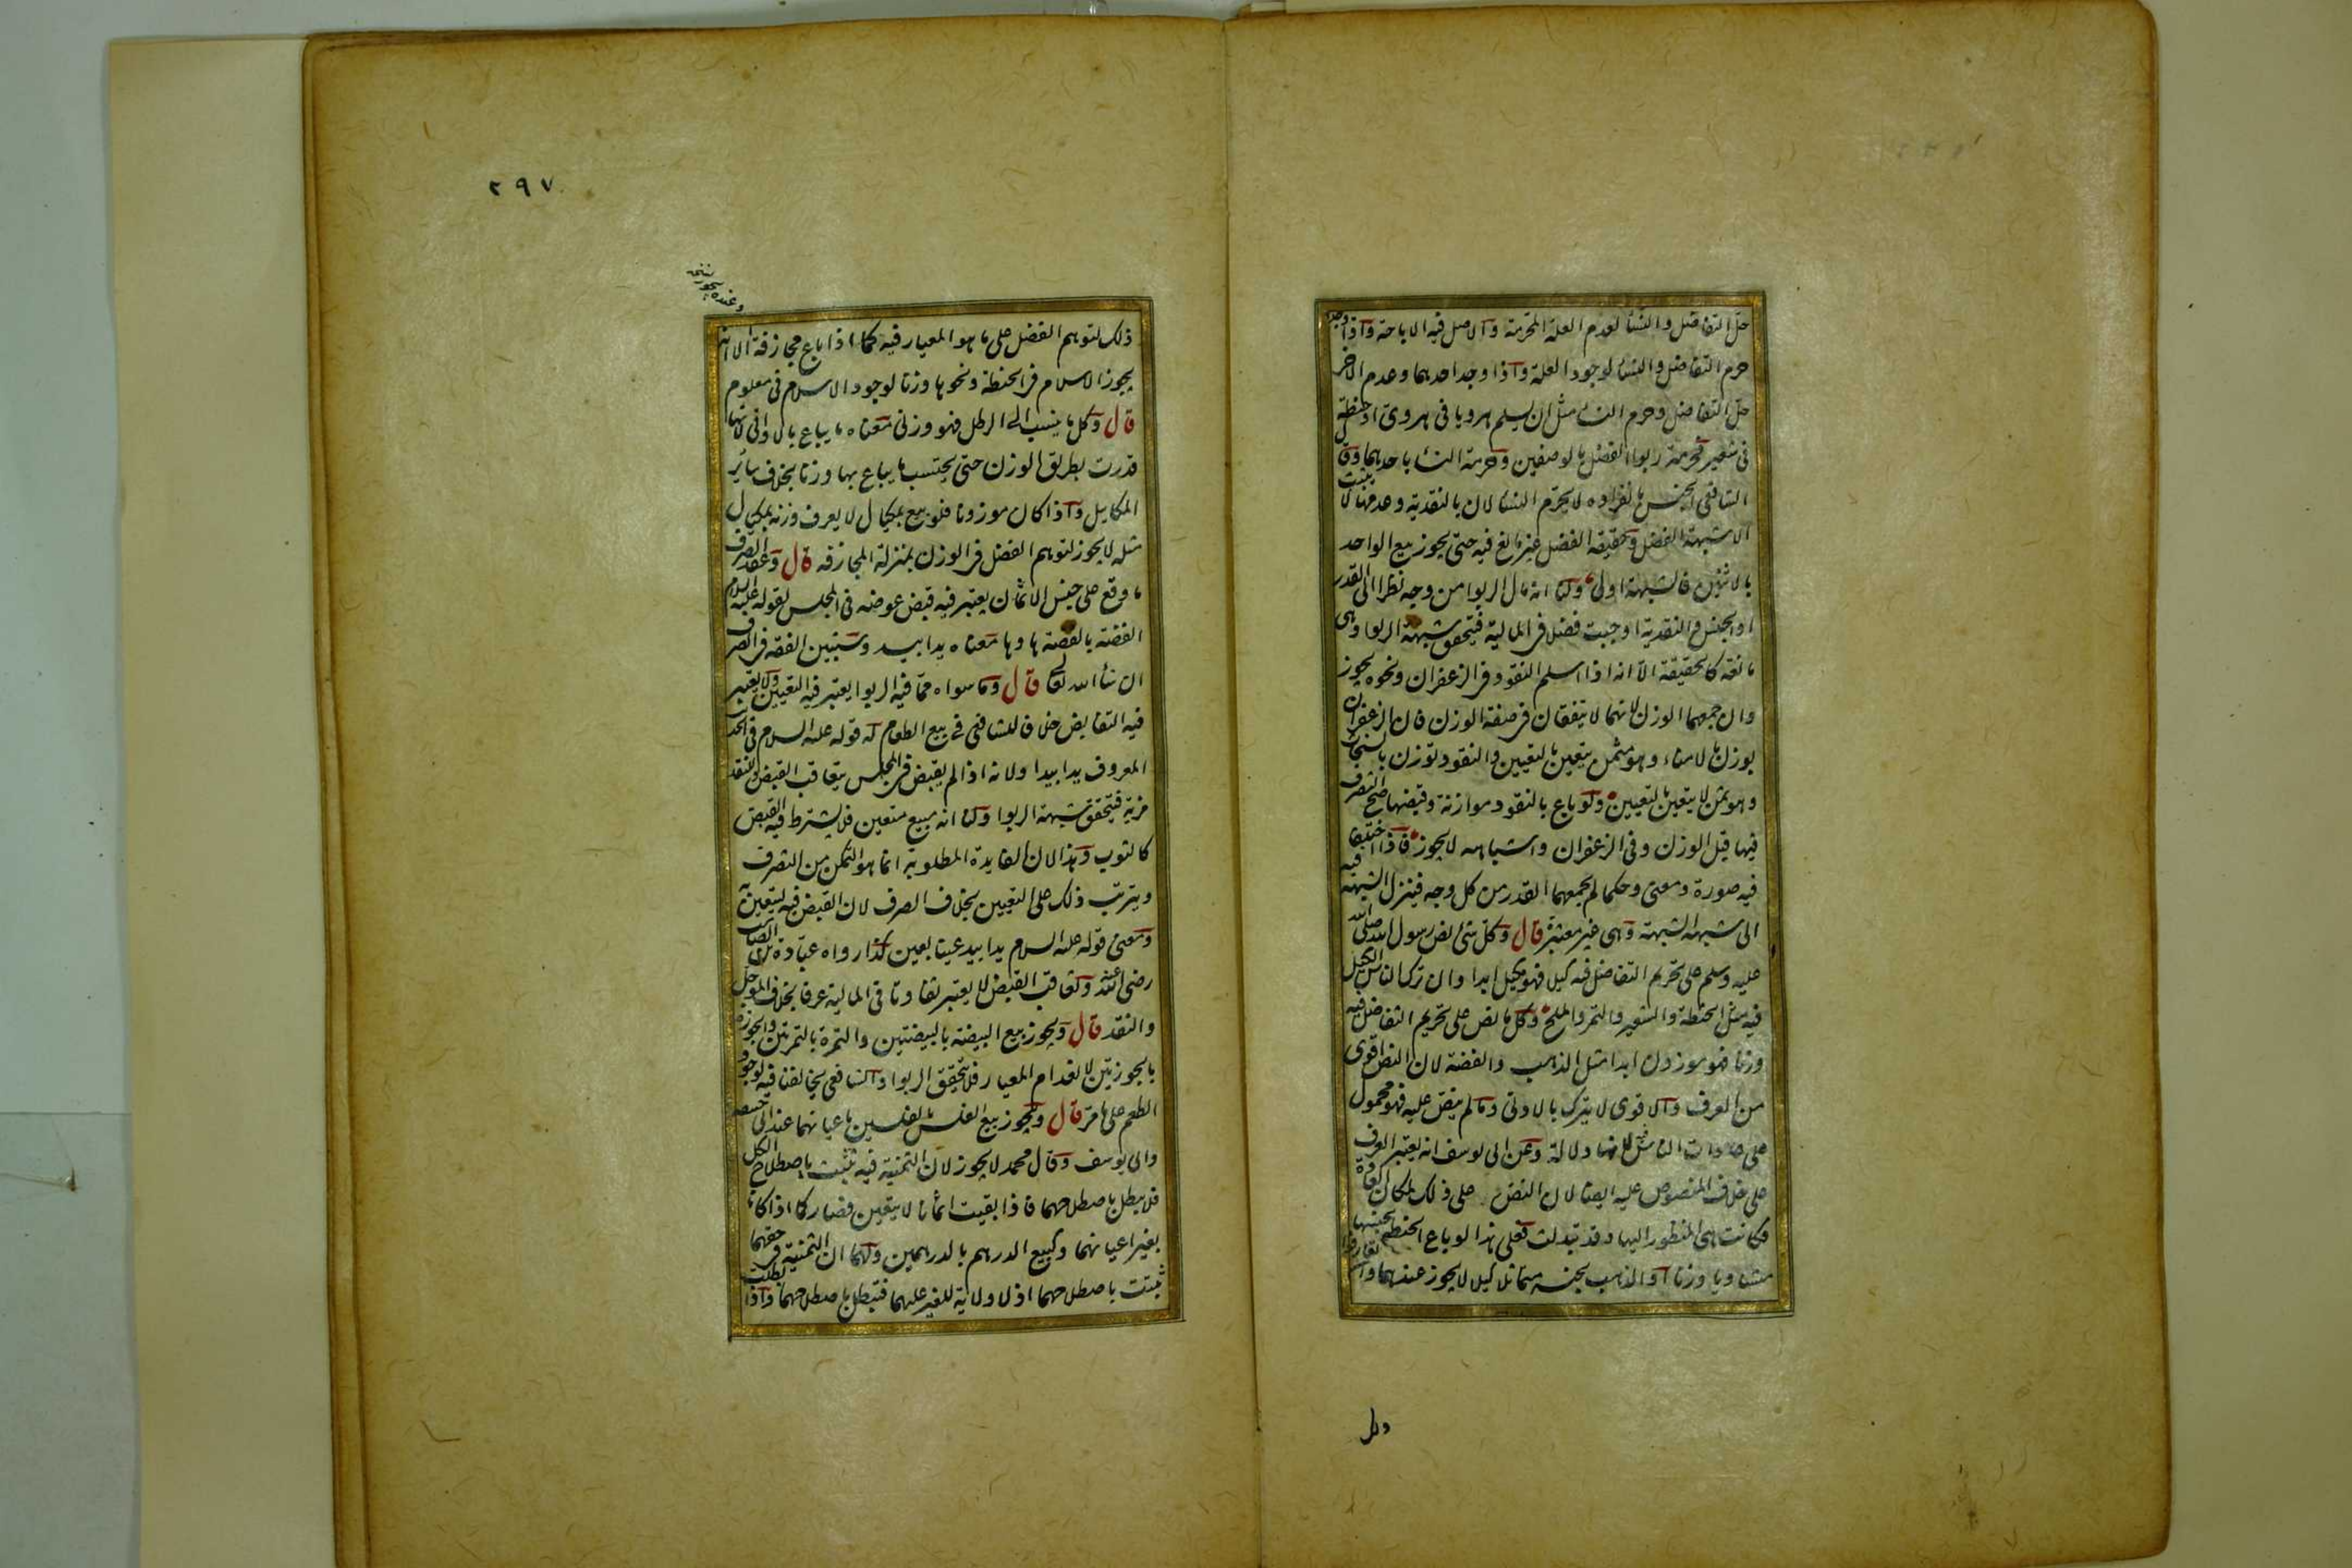 حل التفاضل والنسأ لعدم العلة المحرمة والاصل فيه الاباحة واذا وجدا
حرم التفاضل والنسأ لوجود العلة واذا وجد احدهما وعدم الاخر
حل التفاضل وحرم النسأ مثل ان يسلم هرويا فى هروى او حنطة
فى شعير فحرمة ربوا الفضل بالوصفين وحرمة النسأ باحدهما وقال
الشافعى الجنس بانفراده لا يحرم النسأ لان بالنقدية وعدمها لا يثبت
الا شبهة الفضل وحقيقة الفضل غير مانع فيه حتى يجوز بيع الواحد
بالاثنين فالشبهة اولى ولنا انه مال الربوا من وجه نظرا الى القدر
او الجنس والنقدية اوجبت فضلا فى المالية فيتحقق شبهة الربوا وهى
مانعة كالحقيقة الا انه اذا اسلم النقود فى الزعفران ونحوه يجوز
وان جمعهما الوزن لانهما لا يتفقان فى صفة الوزن فان الزعفران
يوزن بالامناء وهو مثمن يتعين بالتعيين والنقود توزن بالسنجات
وهو ثمن لا يتعين بالتعيين ولو باع بالنقود موازنة وقبضها صح التصرف
فيها قبل الوزن وفى الزعفران واشباهه لا يجوز فاذا اختلفا
فيه صورة ومعنى وحكما لم يجمعهما القدر من كل وجه فينزل الشبهة فيه
الى شبهة الشبهة وهى غير معتبرة قال وكل شئ نص رسول الله صلى الله
عليه وسلم على تحريم التفاضل فيه كيلا فهو مكيل ابدا وان ترك الناس الكيل
فيه مثل الحنطة والشعير والتمر والملح وكل ما نص على تحريم التفاضل فيه
وزنا فهو موزون ابدا مثل الذهب والفضة لان النص اقوى
من العرف والاقوى لا يترك بالادنى وما لم ينص عليه فهو محمول
على عادات الناس لانها دلالة وعن ابى يوسف انه يعتبر العرف
على خلاف المنصوص عليه ايضا لان النص على ذلك لمكان العادة
فكانت هى المنظور اليها وقد تبدلت فعلى هذا لو باع الحنطة بجنسها
متساويا وزنا او الذهب بجنسه متماثلا كيلا لا يجوز عندهما وان تعارفوا
ولك
٢٩٧
وعنده يجوز نسخه
ذلك لتوهم الفضل على ما هو المعيار فيه كما اذا باع مجازفة الا انه
يجوز الاسلام فى الحنطة ونحوها وزنا لوجود الاسلام فى معلوم
قال وكل ما ينسب الى الرطل فهو وزنى معناه ما يباع بالاواقى لانها
قدرت بطريق الوزن حتى يحتسب ما يباع بها وزنا بخلاف سائر
المكاييل واذا كان موزونا فلو بيع بمكيال لا يعرف وزنه بمكيال
مثله لا يجوز لتوهم الفضل فى الوزن بمنزلة المجازفة قال وعقد الصرف
ما وقع على جنس الاثمان يعتبر فيه قبض عوضه فى المجلس لقوله عليه السلام
الفضة بالفضة ها وها معناه يدا بيد وسنبين الفقه فى الصرف
ان شأ الله تعالى قال وما سواه مما فيه الربوا يعتبر فيه التعيين ولا يعتبر
فيه التقابض خلافا للشافعى فى بيع الطعام له قوله عليه السلام فى الحديث
المعروف يدا بيد ولانه اذا لم يقبض فى المجلس يتعاقب القبض وللنقد
مزية فيتحقق شبهة الربوا ولنا انه مبيع متعين فلا يشترط فيه القبض
كالثوب وهذا لان الفايدة المطلوبة انما هو التمكن من التصرف
ويترتب ذلك على التعيين بخلاف الصرف لان القبض فيه ليتعين به
ومعنى قوله عليه السلام يدا بيد عينا بعين كذا رواه عبادة بن الصامت
رضى الله عنه وتعاقب القبض لا يعتبر تفاوتا فى المالية عرفا بخلاف المؤجل
والنقد قال ويجوز بيع البيضة بالبيضتين والتمرة بالتمرتين والجوزة
بالجوزتين لانعدام المعيار فلا يتحقق الربوا والشافعى يخالفنا فيه لوجود
الطعم على ما مر قال ويجوز بيع الفلس بالفلسين باعيانهما عند ابى حنيفة
وابى يوسف وقال محمد لا يجوز لان الثمنية فيه تثبت باصطلاح الكل
فلا يبطل باصطلاحهما فاذا بقيت اثمانا لا يتعين فصار كما اذا كانا
بغير اعيانهما وكبيع الدرهم بالدرهمين ولهما ان الثمنية فى حقهما
ثبتت باصطلاحهما اذ لا ولاية للغير عليهما فتبطل باصطلاحهما واذا بطلت